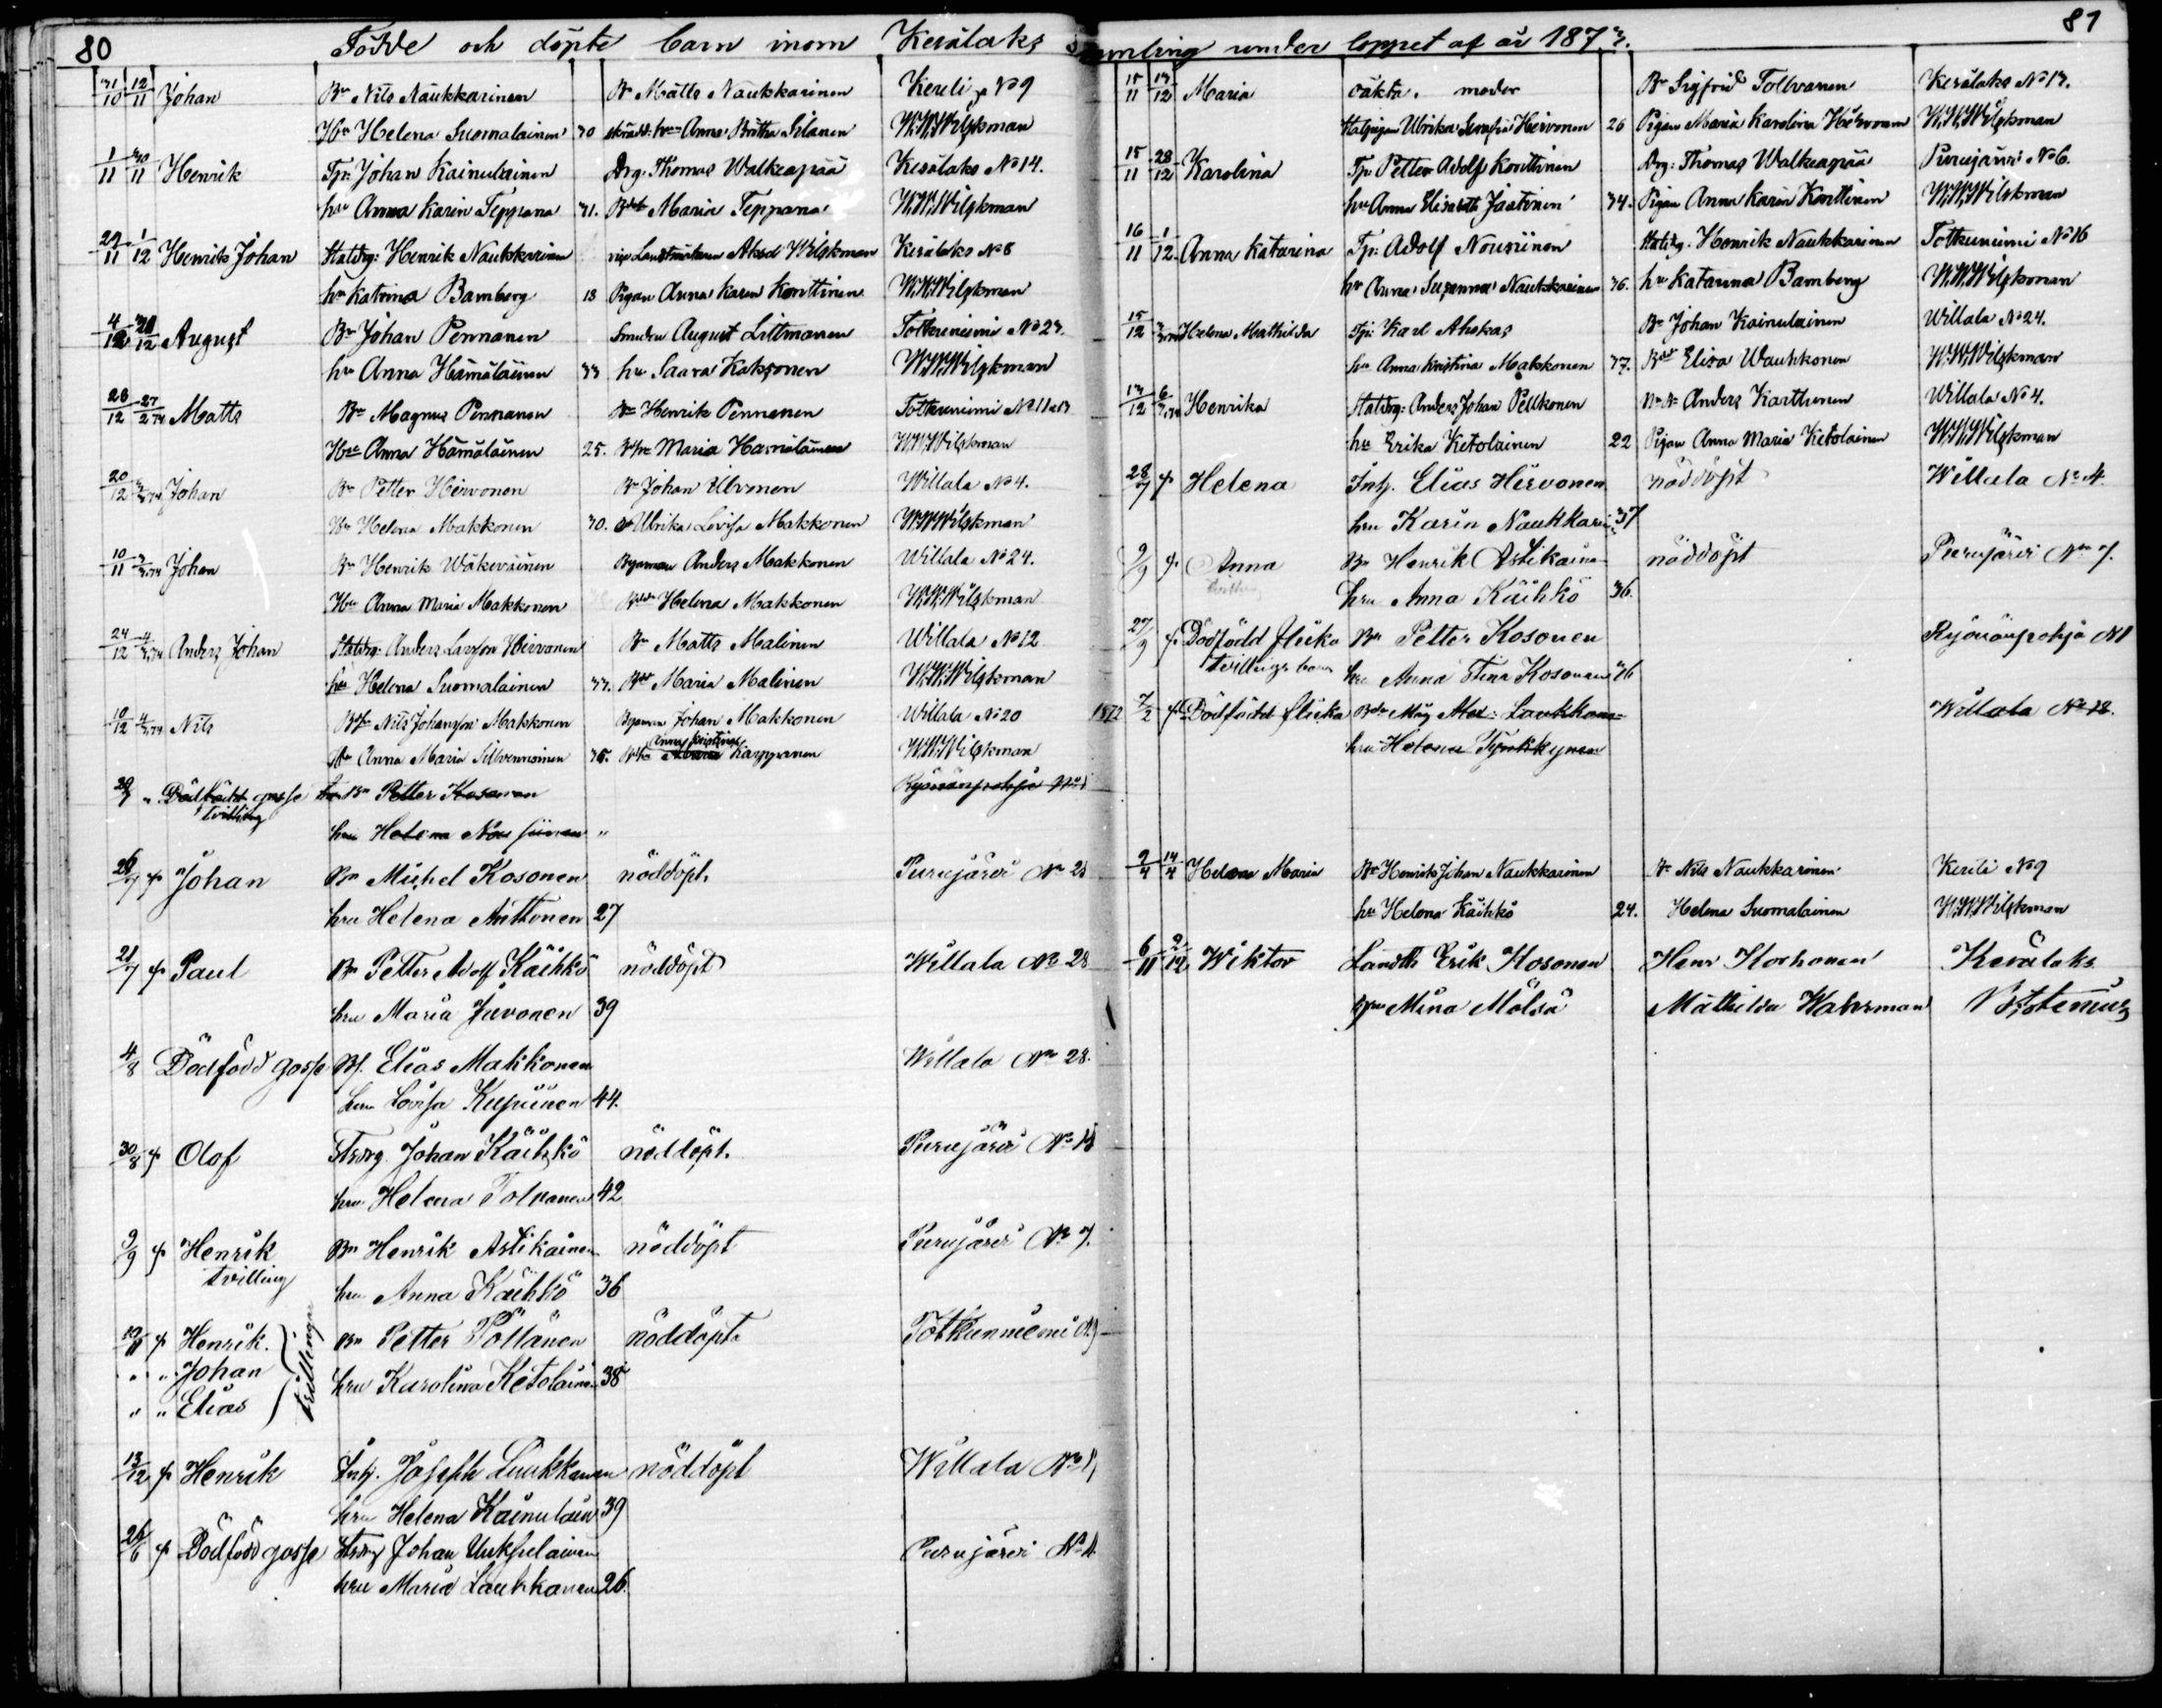 80
Födde och döpte barn inom Kesälaks
31/10 12/11 Johan Bn Nils Naukkarinen Bn Matts Naukkarinen Kereli No 9
Hu Helena Suomalainen 30 Anna Britha Silanen W.W.Wilskman
1/11 30/11 Henrik Tp. Johan Kainulainen Drg. Thomas Walkeapää Kesälaks No 14.
hu Anna Karin Teppana 31. Maria Teppana W.W.Wilskman
29/11 1/12 Henrik Johan Staldrg: Henrik Naukkarinen vice Landtmätaren Axel Wilskman Kesälaks No 8
hu Katrina Bamberg 18 Pigan Anna Karin Konttinen W.W.Wilskman
4/12 August Bn Johan Pennanen Smeden August Littmanen Totkuniemi No 23.
hu Anna Hämäläinen 33 hu Saara Kaksonen W.W.Wilskman
26/12 27/2 74 Matts Bn Magnus Pennanen Bn Henrik Pennanen Totkuniemi No 11
Hu Anna Hämäläinen 25. Maria Hämäläinen W.W.Wilskman
20/12 Johan Bn Petter Hirvonen Bn Johan Ilvonen Willala No 4.
Hu Helena Makkonen 30. Ulrika Lovisa Makkonen W.W.Wilskman
10/11 Johan Bn Henrik Wäkeväinen Byaman Anders Makkonen Willala No 24.
Hu Anna Maria Makkonen Helena Makkonen W.W.Wilskman
24/12 Anders Johan Staldrg. Anders Larsson Hirvonen Bn Matts Malinen Willala No 12
hu Helena Suomalainen 33. Maria Malinen W.W.Wilskman
10/12 Nils Nils Johansson Makkonen Byaman Johan Makkonen Willala No 20
Hu Anna Maria Silvennoinen 35. Anna Kristina Karppanen W.W.Wilskman
" Dödfödd gosse Bn Petter Kosonen Ryönänpohja
tvilling
hu Helena Nousiainen "
26/7 Johan Bn Michel Kosonen nöddöpt. Purujärvi No 21
hru Helena Anttonen 27
21/7 Paul Bn Petter Adolf Käihkö nöddöpt Willala No 28
hru Maria Juvonen 39
4/8 Dödfödd gosse Elias Makkonen Willala No 28.
hru Lovisa 44.
30/8 Olof Johan Käihkö nöddöpt. Purujärvi No 18
hru Helena Tolvanen 42
9/9 Henrik Bn Henrik Astikainen nöddöpt Purujärvi No 7.
tvilling
hru Anna Käihkö 36
Henrik. Bn Petter Pöllänen nöddöpt Totkunniemi
" " Johan hru Karolina Ketolainen 38
" " Elias
trillingar
13/12 Henrik Inh. Joseph Luukkanen nöddöpt Willala
hru Helena Kainulain 39
26/6 Dödfödd gosse Johan Purujärvi
hru Maria Laukkanen 26.
81
samling under loppet af år 1873.
15/11 13/12 Maria oäkta. moder Bn Sigfrid Tolvanen Kesälaks No 13.
Stalpigan Ulrika Serafia Hirvonen 26 Pigan Maria Karolina Hirvonen W.W.Wilskman
15/11 28/12 Karolina Tp. Petter Adolf Konttinen Drg: Thomas Walkeapää Purujärvi No 6.
hu Anna Elisabeth Jaatinen 34. Pigan Anna Karin Konttinen W.W.Wilskman
16/11 1/12 Anna Katarina Tp. Adolf Nousiinen Staldrg. Henrik Naukkarinen Totkuniemi No 16
hu Anna Susanna Naukkarinen 36. hu Katarina Bamberg W.W.Wilskman
15/12 Helena Mathilda Tp. Karl Ahokas Bn Johan Kainulainen Willala No 24.
hu Anna Kristina Makkonen 37. Elisa Wauhkonen W.W.Wilskman
13/12 Henrika Staldrg. Anders Johan Pelkonen Anders Karttunen Willala No 4.
hu Erika Ketolainen 22 Pigan Anna Maria Ketolainen W.W.Wilskman
28/7 Helena Inh. Elias Hirvonen nöddöpt Willala No 4.
hru Karin Naukkari 37
9/9 Anna Bn Henrik Astikain nöddöpt Purujärvi No 7.
tvilling
hru Anna Käihkö 36.
27/9 Dödfödd flicka Bn Petter Kosonen Ryönänpohja
tvillings barn
hru Anna Stina Kosonen 36
1872 7/2 Dödfödd flicka Willala No 12.
hru Helena Tynkkynen
2/4 14/4 Helena Maria Bn Henrik Johan Naukkarinen Bn Nils Naukkarinen Kereli No 9
hu Helena Käihkö 24. Helena Suomalainen W.W.Wilskman
6/11 2/12 Wiktor Landth Erik Kosonen Henr Korhonen Kesälaks
Mina Mölsä Mathilda Wahrman